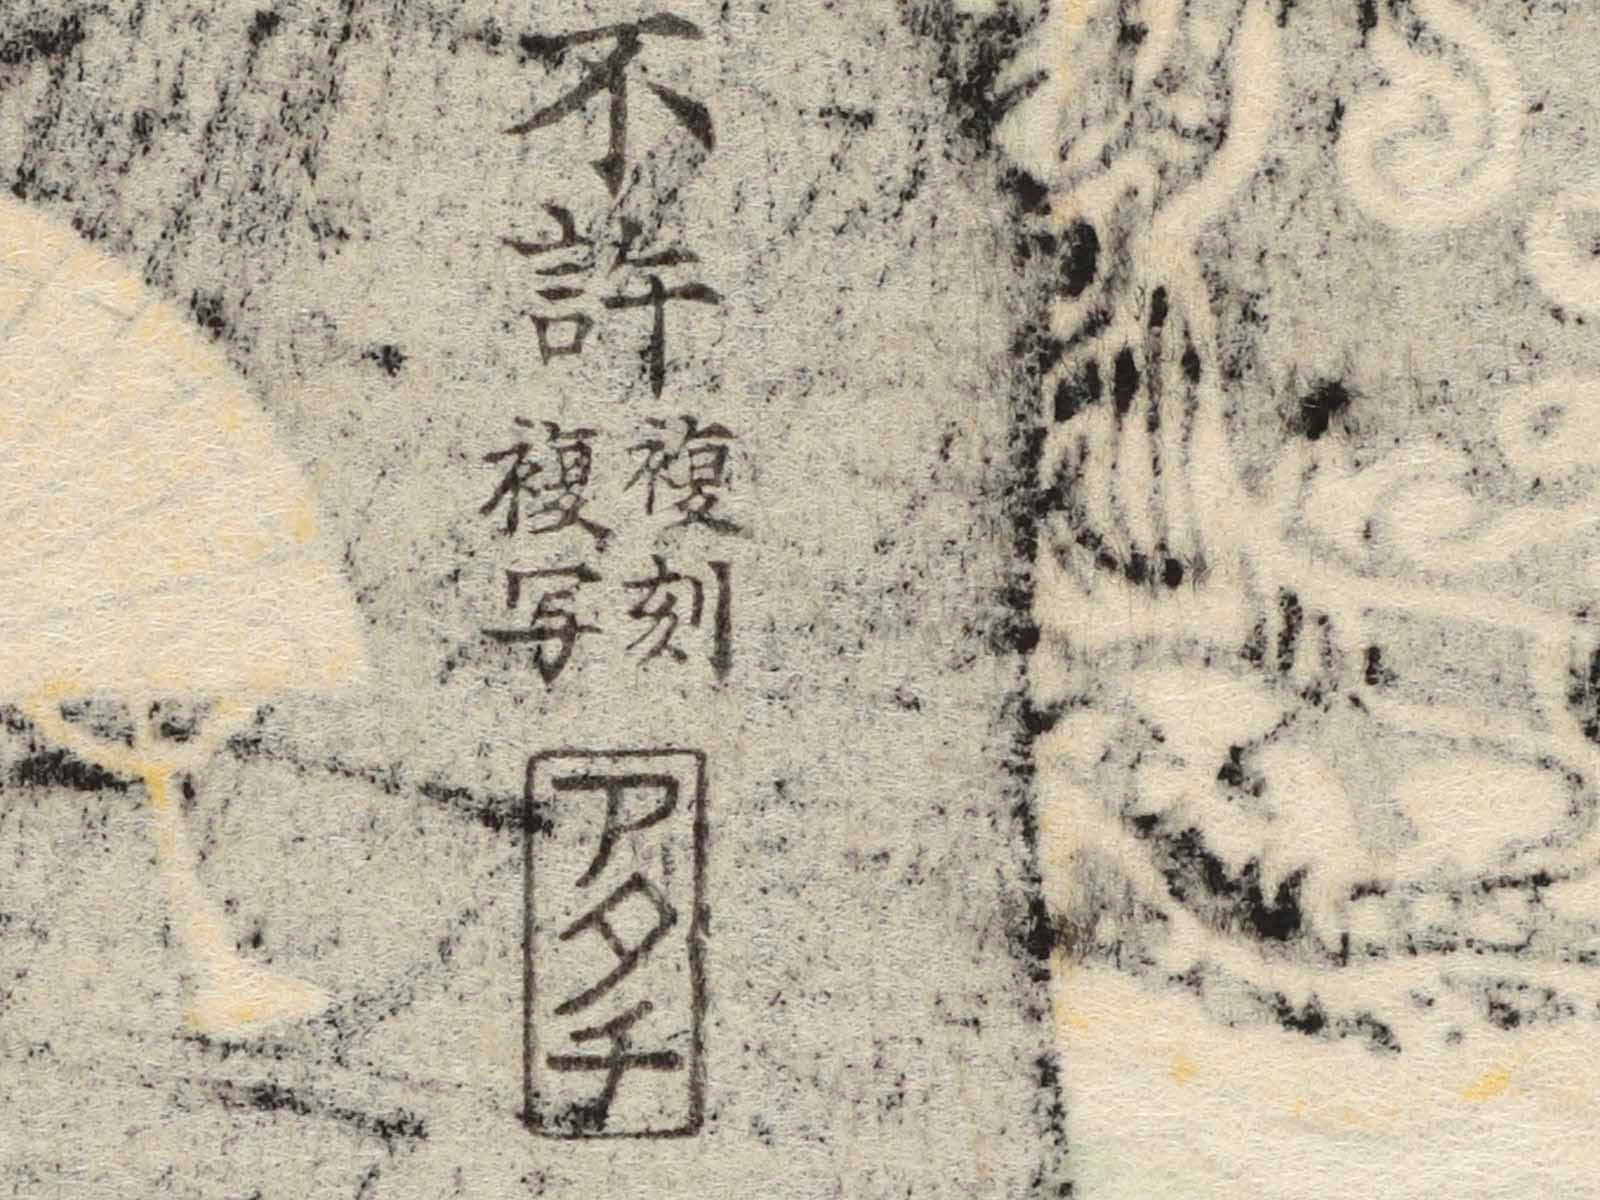 不許
複刻
複写
アダチ